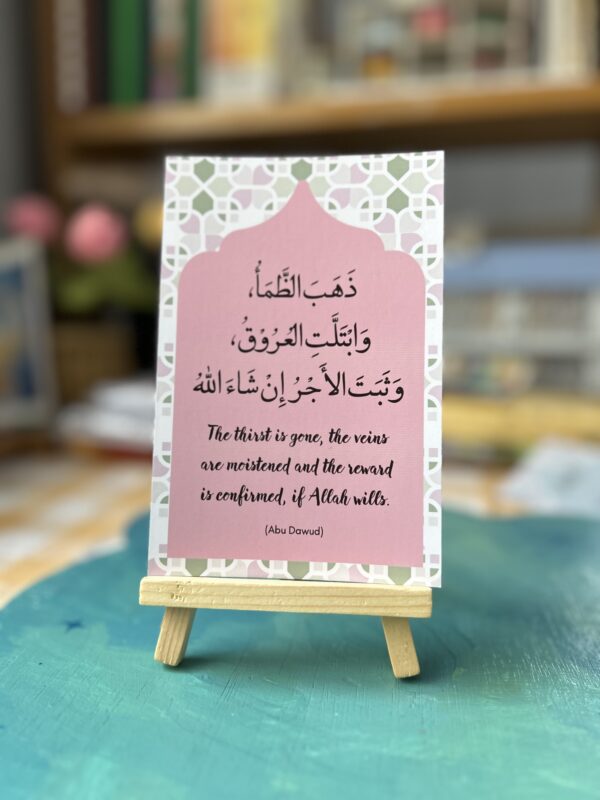 ذَهَبَ الظَّمَأُ،
وَابْتَلَّتِ العُرُوْقُ،
وَثَبَتَ الأَجْرُ إِنْ شَاءَ اللهُ
The thirst is gone, the veins
are moistened and the reward
is confirmed, if Allah wills.
(Abu Dawud)